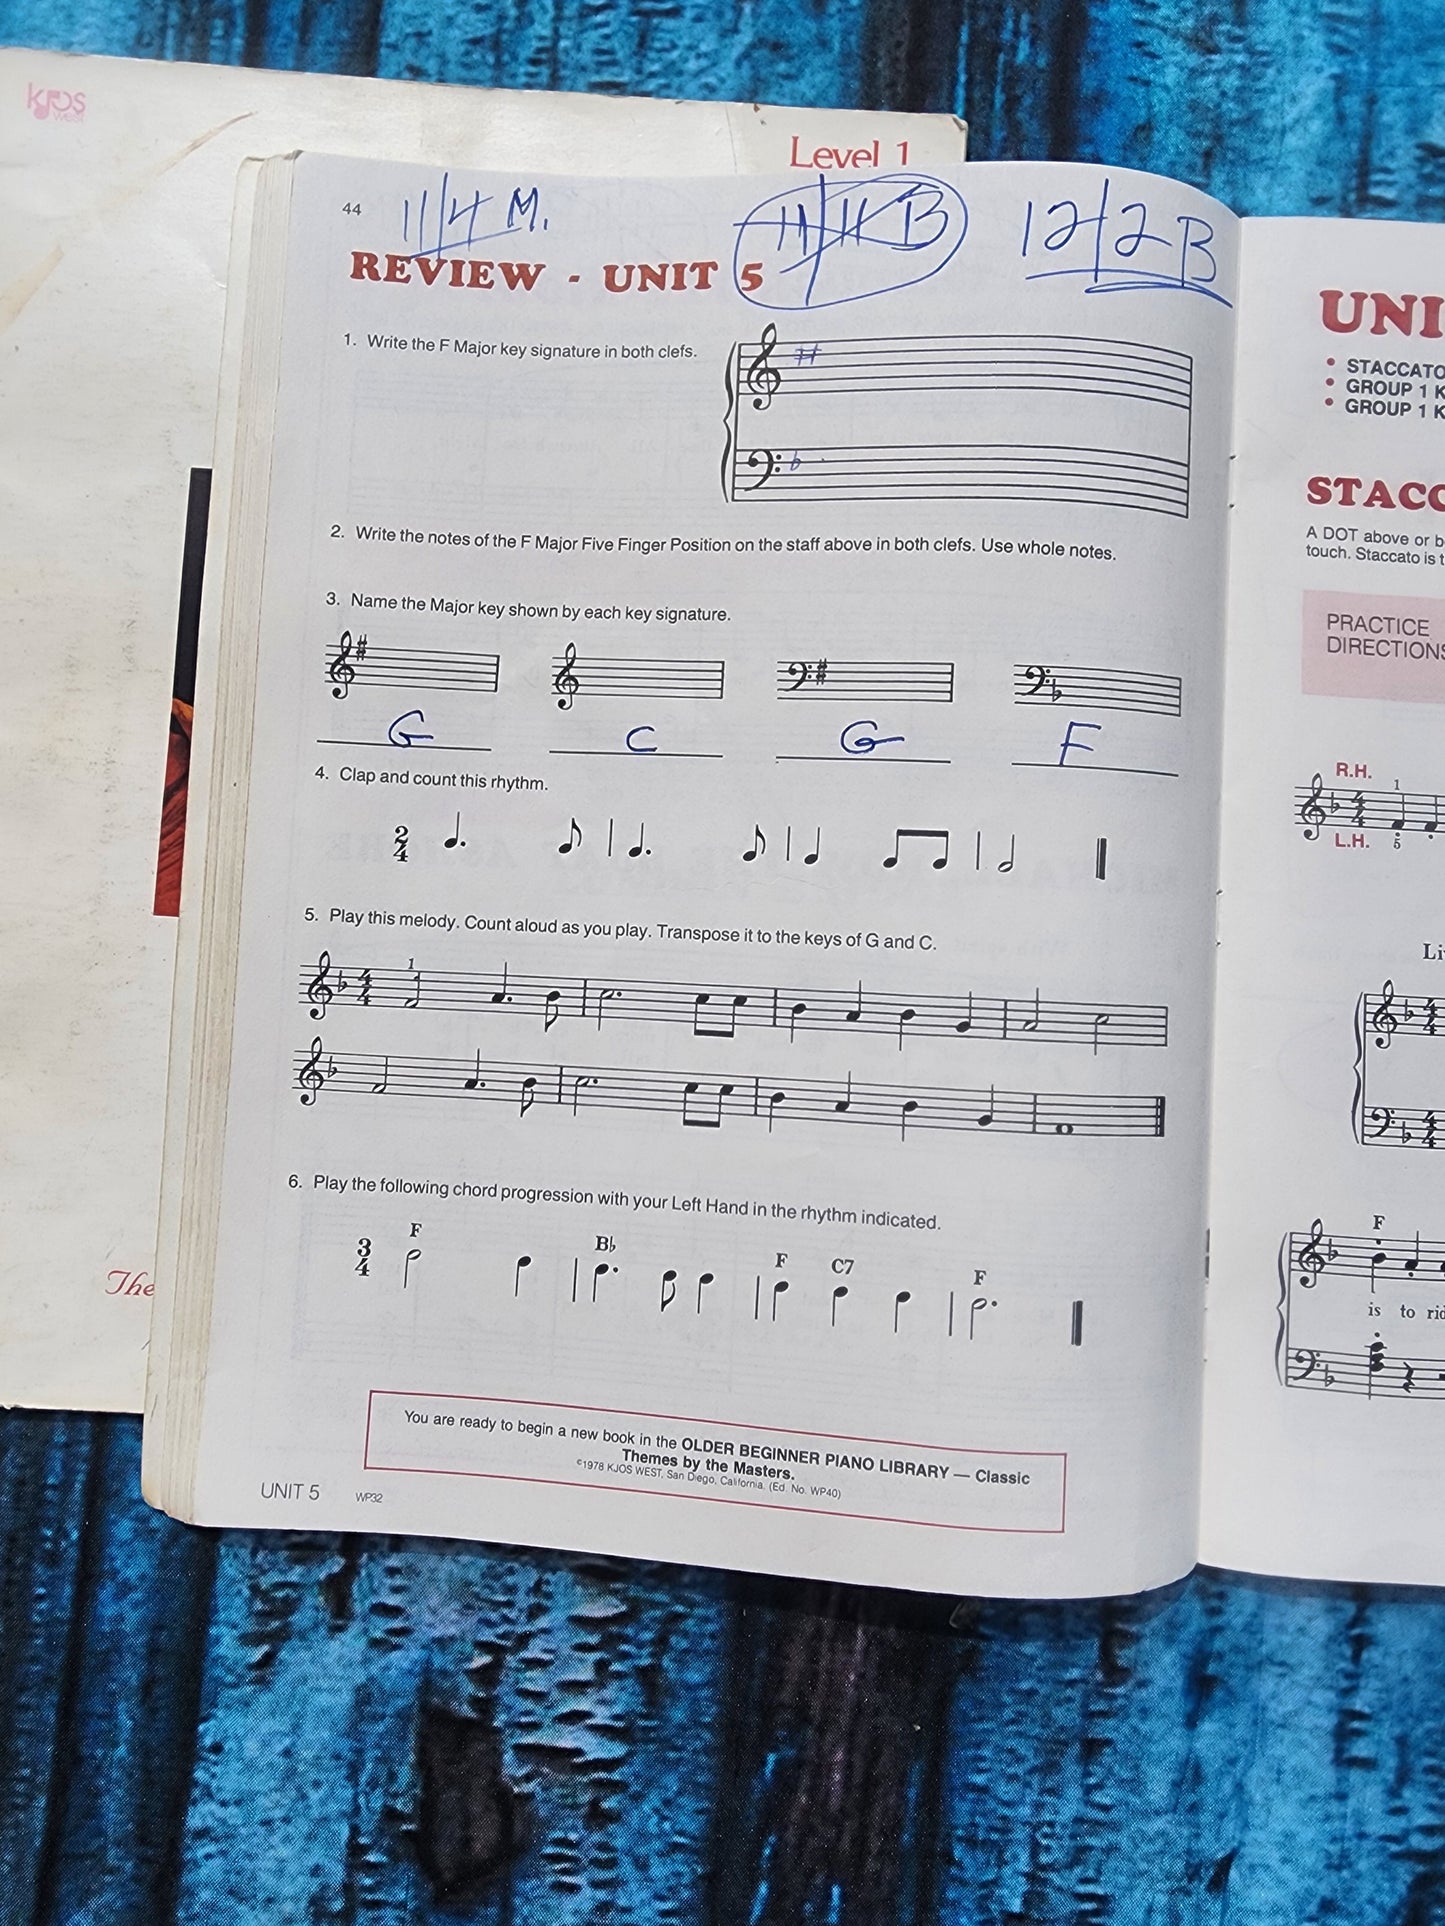 KJOS
West
Level 1
44
11/4 M.
11/11 B
12/2 B
REVIEW - UNIT 5
1. Write the F Major key signature in both clefs.
2. Write the notes of the F Major Five Finger Position on the staff above in both clefs. Use whole notes.
3. Name the Major key shown by each key signature.
G C G F
4. Clap and count this rhythm.
2
4
5. Play this melody. Count aloud as you play. Transpose it to the keys of G and C.
1
4
4
6. Play the following chord progression with your Left Hand in the rhythm indicated.
F B♭ F C7 F
3
4
You are ready to begin a new book in the OLDER BEGINNER PIANO LIBRARY — Classic
Themes by the Masters.
©1978 KJOS WEST, San Diego, California. (Ed. No. WP40)
UNIT 5 WP32
The
UNI
• STACCATO
• GROUP 1 K
• GROUP 1 K
STACC
A DOT above or b
touch. Staccato is t
PRACTICE
DIRECTIONS
R.H.
1
4
4
L.H. 5
Li
4
4
4
4
F
is to rid